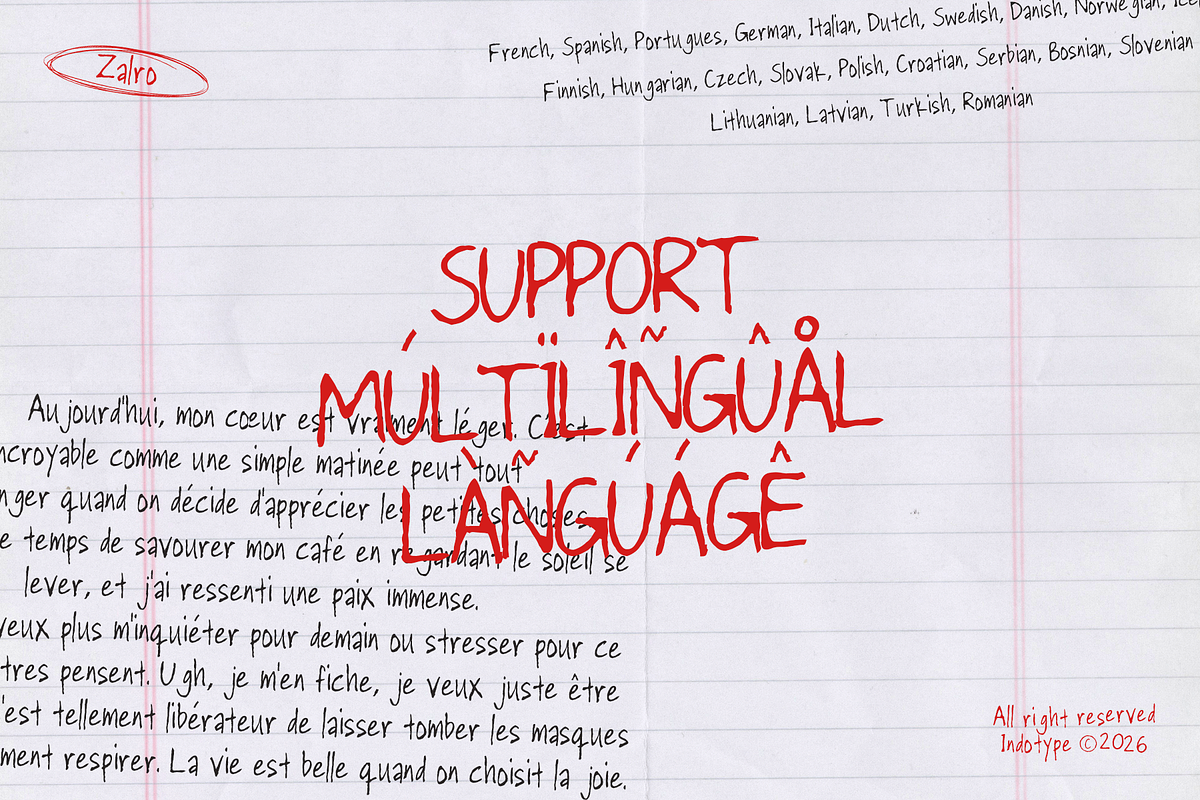 Zalro
French, Spanish, Portugues, German, Italian, Dutch, Swedish, Danish, Norwegian,
Finnish, Hungarian, Czech, Slovak, Polish, Croatian, Serbian, Bosnian, Slovenian
Lithuanian, Latvian, Turkish, Romanian
SUPPORT
MÚLTÏLÎÑGÛÅL
LÀÑGÚÁGÊ
Aujourd'hui, mon cœur est vraiment léger. C'est
ncroyable comme une simple matinée peut tout
nger quand on décide d'apprécier les petites choses
e temps de savourer mon café en regardant le soleil se
lever, et j'ai ressenti une paix immense.
veux plus m'inquiéter pour demain ou stresser pour ce
tres pensent. Ugh, je m'en fiche, je veux juste être
'est tellement libérateur de laisser tomber les masques
ment respirer. La vie est belle quand on choisit la joie.
All right reserved
Indotype ©2026